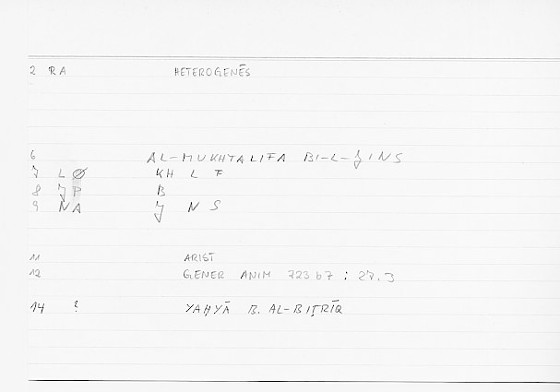 2 RA HETEROGENĒS
6 AL-MUKHTALIFA BI-L-ǦINS
7 LØ KH L F
8 ǦP B
9 NA Ǧ N S
11 ARIST
12 GENER ANIM 723 b7 ; 27.3
14 ? YAḤYĀ B. AL-BIṬRĪQ